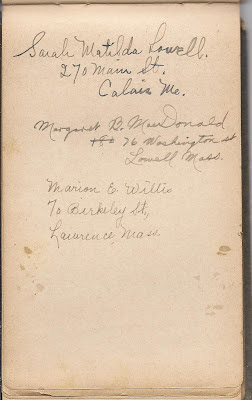 Sarah Matilda Lowell.
270 Main St.
Calais Me.
Margaret B. MacDonald
76 Washington St
Lowell Mass.
Marion E. Willis
70 Berkeley St.,
Lawrence Mass.